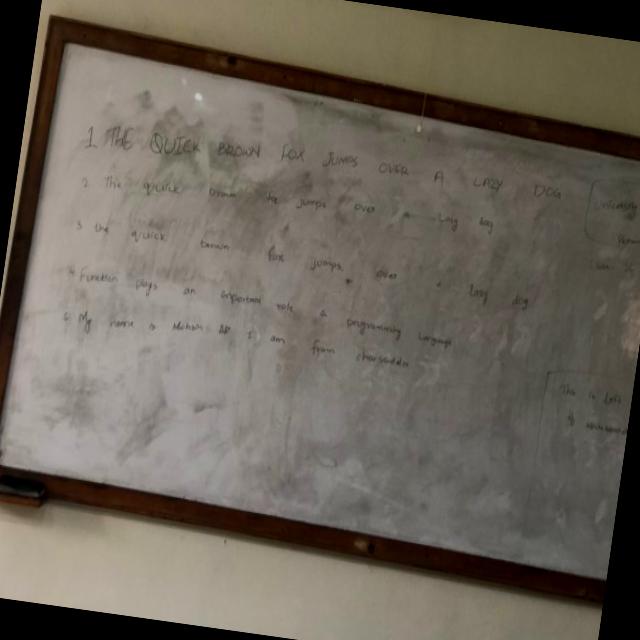 1 THE QUICK BROWN FOX JUMPS OVER A LAZY DOG
2 The quick brown fox jumps over a lazy dog
3 the quick brown fox jumps over a lazy dog
4 Function plays an important role a programming language
5 My name is I am from
This is
of